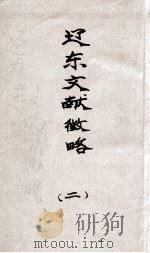 辽东文献徵略
(二)
www.mtoou.info/